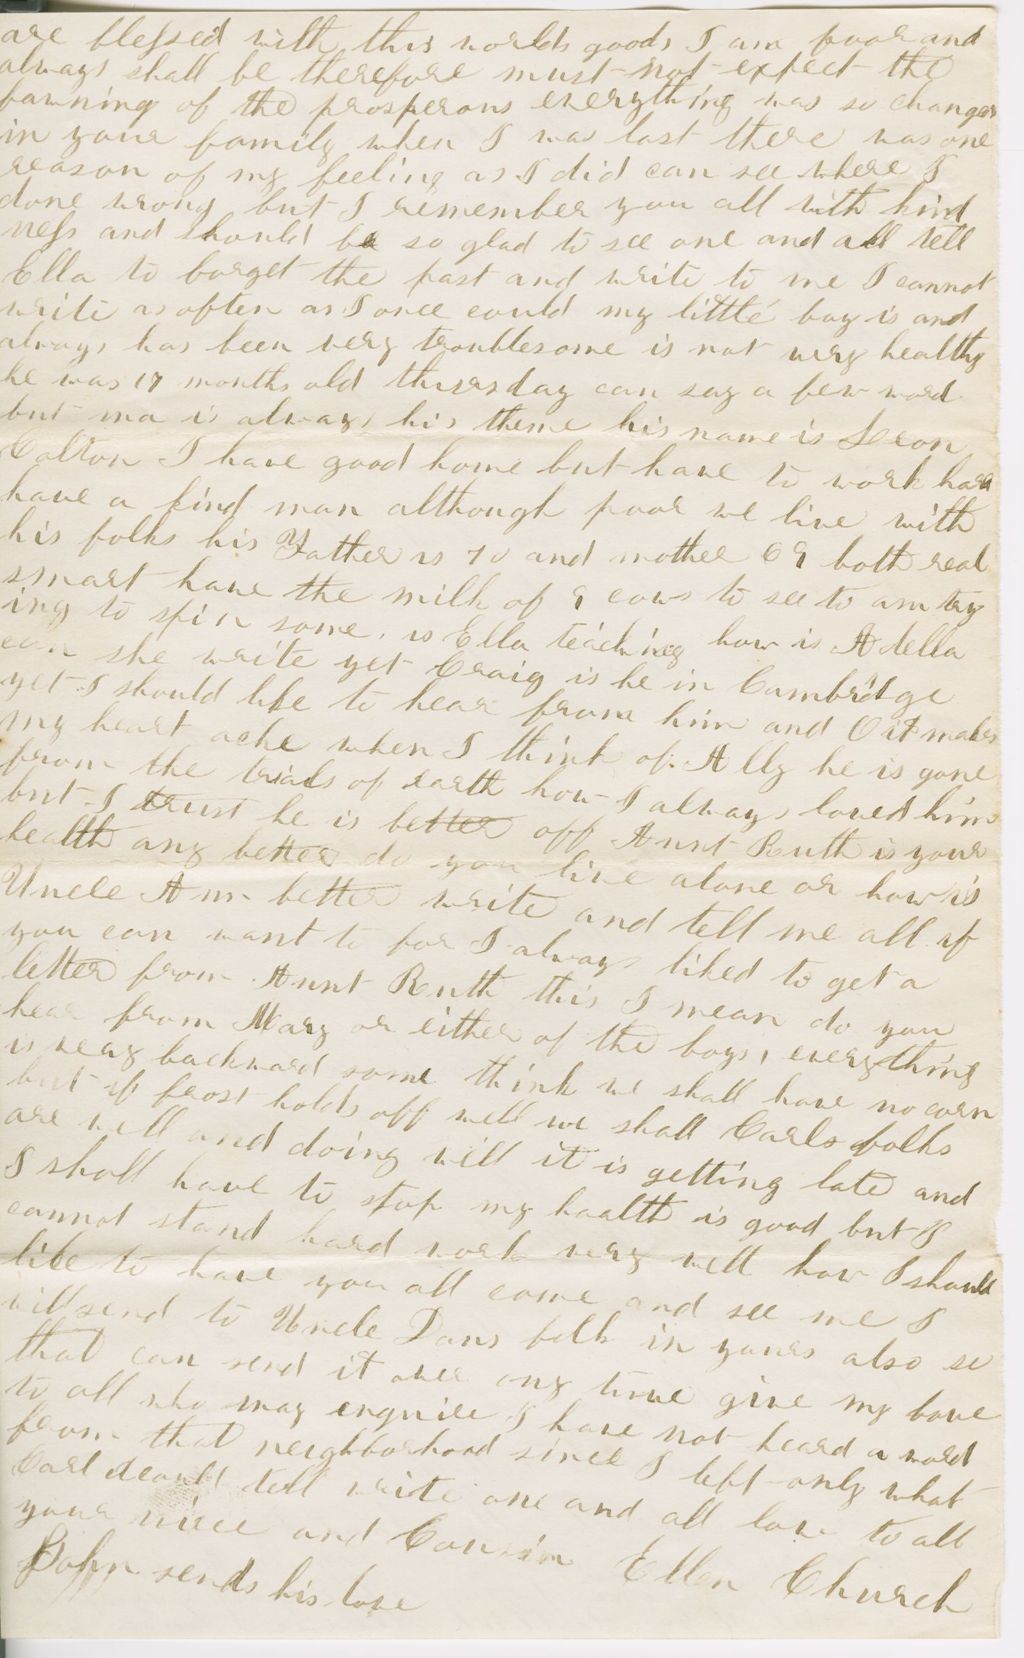 are blessed with this worlds goods I am poor and
always shall be therefore must not expect the
fawning of the prosperous everything was so changed
in your family when I was last there was one
reason of my feeling as I did can see where I
done wrong but I remember you all with kind
ness and should be so glad to see one and all tell
Ella to forget the past and write to me I cannot
write as often as I once could my little boy is and
always has been very troublesome is not very healthy
he was 17 months old thursday can say a few word
but ma is always his theme his name is Leon
Colton I have good home but have to work hard
have a kind man although poor we live with
his folks his Father is 70 and mother 69 both real
smart have the milk of 9 cows to see to am try
ing to spin some. is Ella teaching how is Adella
can she write yet Craig is he in Cambridge
yet I should like to hear from him and O it makes
my heart ache when I think of Ally he is gone
from the trials of earth how I always loved him
but I trust he is better off Aunt Ruth is your
health any better do you live alone or how is
Uncle Am better write and tell me all if
you can want to for I always liked to get a
letter from Aunt Ruth this I mean do you
hear from Mary or either of the boys, everything
is very backward some think we shall have no corn
but if frost holds off well we shall Carls folks
are well and doing well it is getting late and
I shall have to stop my health is good but I
cannot stand hard work very well how I should
like to have you all come and see me I
will send to Uncle Dans folk in yours also so
that can send it over any time give my love
to all who may enquire I have not heard a word
from that neighborhood since I left only what
Carl could tell write one and all love to all
your niece and Cousin Ellen Church
John sends his love